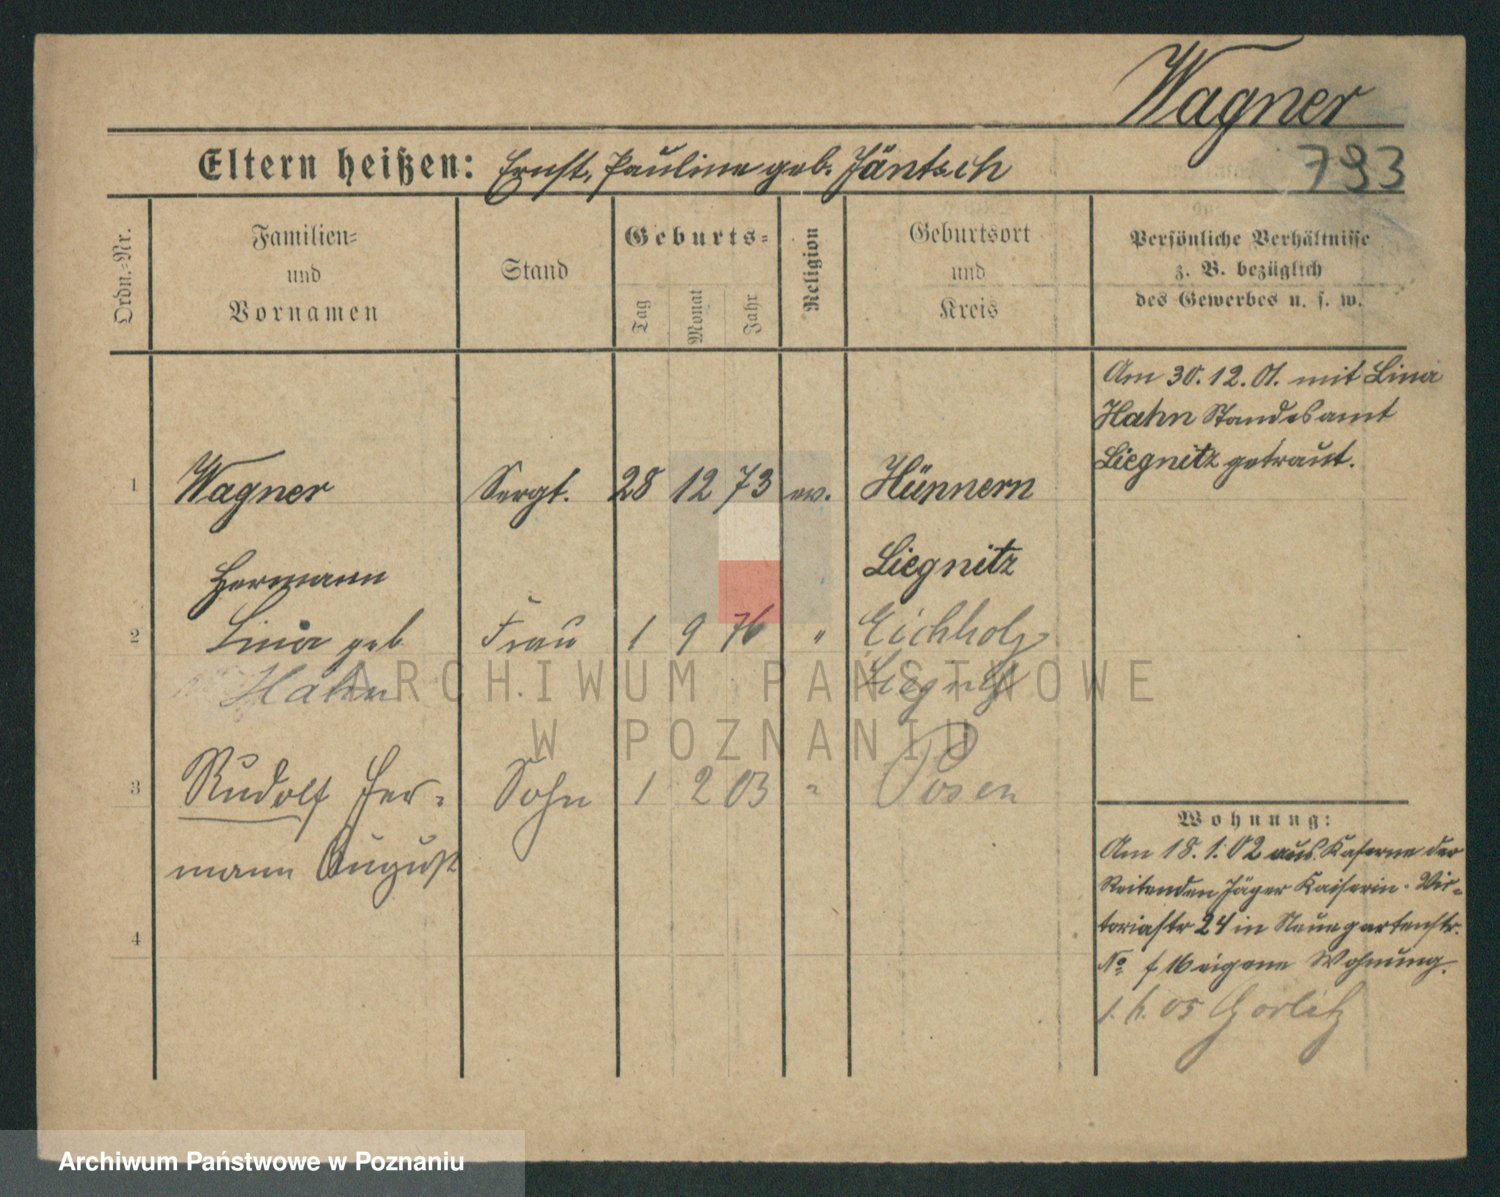 Wagner
793
Eltern heißen: Ernst, Pauline geb. Jäntsch
Ordn.-Nr.
Familien- und Vornamen
Stand
Geburts-
Tag
Monat
Jahr
Religion
Geburtsort und Kreis
Persönliche Verhältnisse
z. B. bezüglich
des Gewerbes u. s. w.
Am 30. 12. 01. mit Lina
Hahn Standesamt
Liegnitz getraut.
1 Wagner Sergt. 28 12 73 ev. Hünnern
Hermann Liegnitz
2 Lina geb Frau 1 9 76 " Eichholz
Hahn Liegnitz
3 Rudolf Her- Sohn 1 2 03 " Posen
mann August
4
Wohnung:
Am 18. 1. 02 aus Kaserne der
Reitenden Jäger Kaiserin-Vic-
toriastr 24 in Neuegartenstr.
No 16 eigene Wohnung.
05 Görlitz
ARCHIWUM PAŃSTWOWE
W POZNANIU
Archiwum Państwowe w Poznaniu